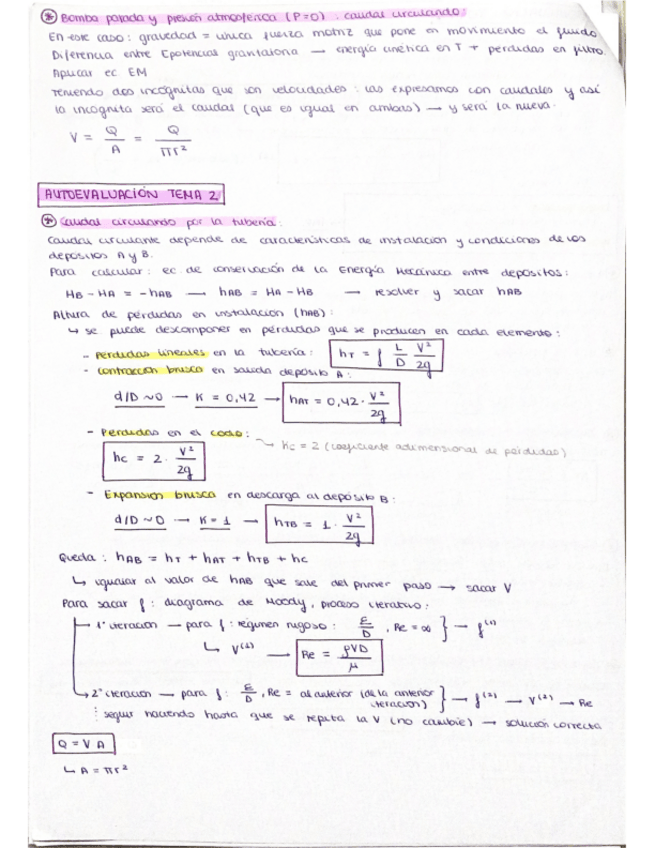 ⊛ Bomba parada y presión atmosférica (P=0) : caudal circulando:
En este caso: gravedad = única fuerza motriz que pone en movimiento el fluido
Diferencia entre Epotencias gravitatoria → energía cinética en T + pérdidas en filtro.
Aplicar ec EM
Teniendo dos incógnitas que son velocidades: las expresamos con caudales y así
la incógnita será el caudal (que es igual en ambas) → y será la nueva.
V = Q/A = Q/πr²
AUTOEVALUACIÓN TEMA 2
⊛ Caudal circulando por la tubería:
Caudal circulante depende de características de instalación y condiciones de los
depósitos A y B.
Para calcular: ec. de conservación de la Energía Mecánica entre depósitos:
HB - HA = -hAB → hAB = HA - HB → resolver y sacar hAB
Altura de pérdidas en instalación (hAB):
↳ se puede descomponer en pérdidas que se producen en cada elemento:
- Pérdidas lineales en la tubería: hT = f L/D V²/2g
- Contracción brusca en salida depósito A:
d/D ~ 0 → K = 0,42 → hAT = 0,42 · V²/2g
- Pérdidas en el codo: → Kc = 2 (coeficiente adimensional de pérdidas)
hc = 2 · V²/2g
- Expansión brusca en descarga al depósito B:
d/D ~ 0 → K = 1 → hTB = 1 · V²/2g
Queda: hAB = hT + hAT + hTB + hc
↳ igualar al valor de hAB que sale del primer paso → sacar V
Para sacar f: diagrama de Moody, proceso iterativo:
→ 1ª iteración → para f: régimen rugoso: ε/D, Re = ∞ } → f⁽¹⁾
↳ V⁽¹⁾ → Re = ρVD/μ
→ 2ª iteración → para f: ε/D, Re = al anterior (de la anterior iteración) } → f⁽²⁾ → V⁽²⁾ → Re
⋮ seguir haciendo hasta que se repita la V (no cambie) → solución correcta
Q = V A
↳ A = πr²